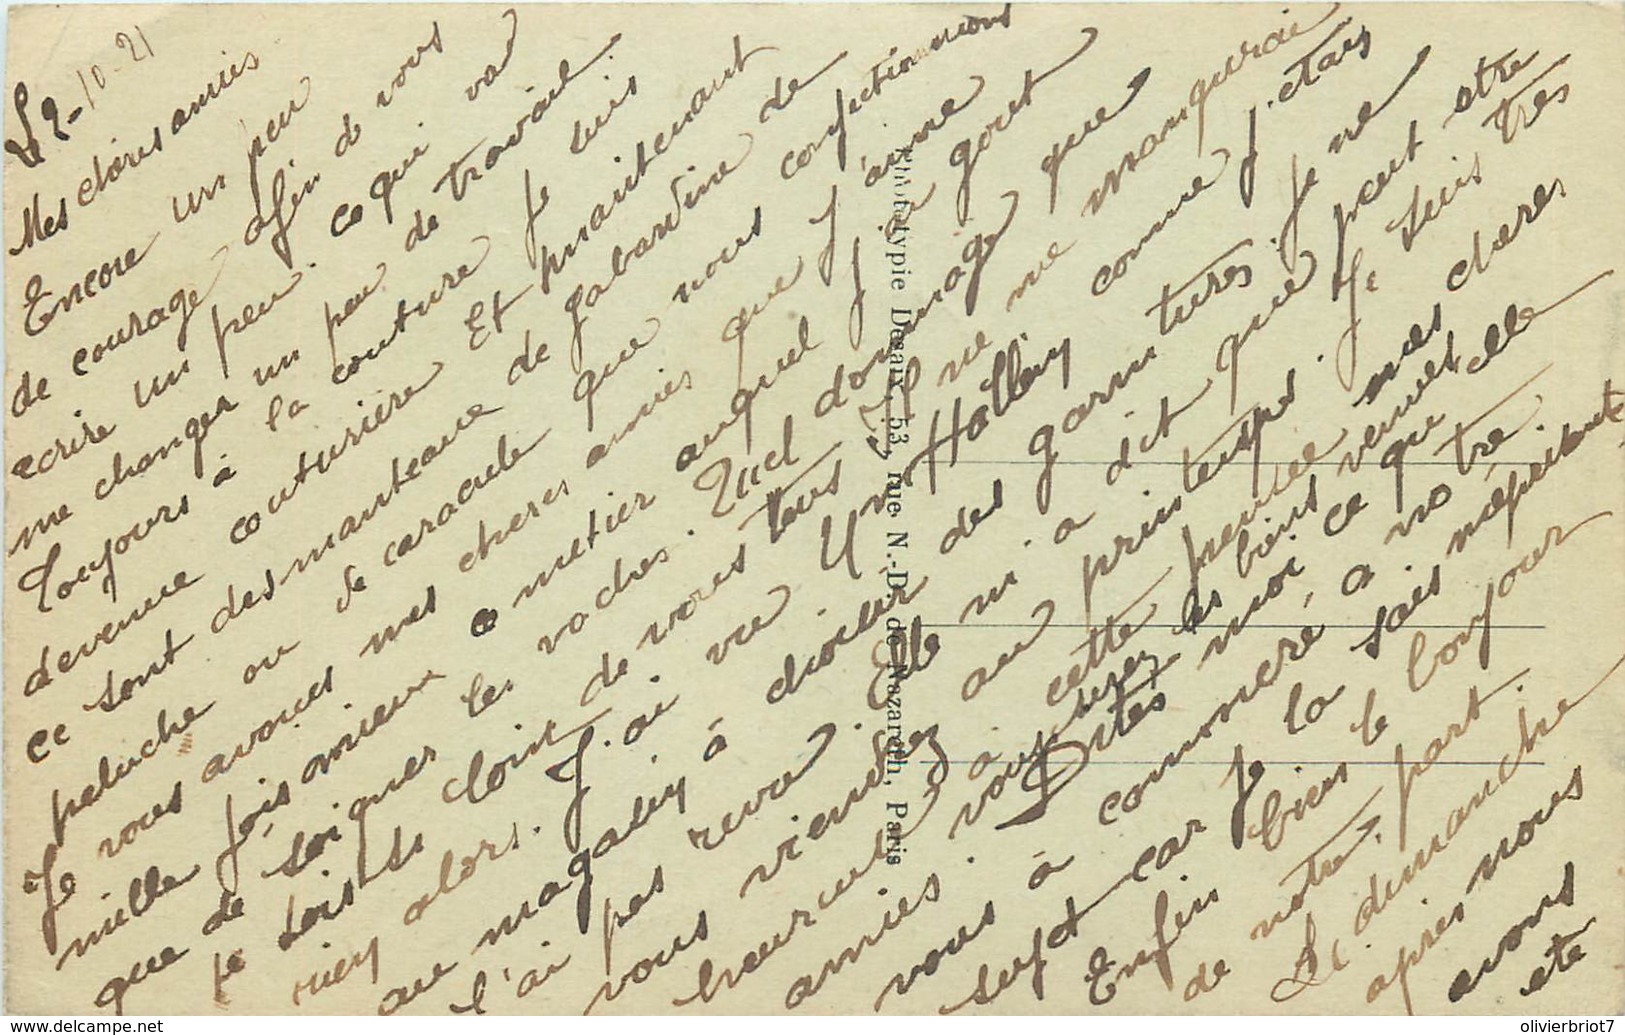 Le 2-10-21
Mes chères amies
Encore un peu
de courage afin de vous
ecrire un peu. ce qui va
me changer un peu de travail.
Toujours à la couture je suis
devenue couturière Et maintenant
ce sont des manteaux de gabardine de
peluche ou de caracule que nous confectionnons
Je vous avoues mes cheres amies que j'aime
mille fois mieux ce metier auquel j'ai gout
que de soigner les vaches. Quel dommage que
je sois si loin de vous tous Il ne me manquerai
rien alors. J'ai vu Mm Hallery comme j'etais
au magasin à choisir des garnitures. Je ne
l'ai pas revu. Elle m'a dit que peut etre
vous viendrez au printemps. Je suis très
heureuse à cette pensée mes cheres
amies. vous
Dites moi ce que elle
vous à commeré, a notre
sujet car je la sais médisante
Enfin bien le bonjour
de notre part.
Le dimanche
après nous
avons
ete
Phototypie Desaix, 53, rue N.-D. de Nazareth, Paris
www.delcampe.net
olivierbriot7